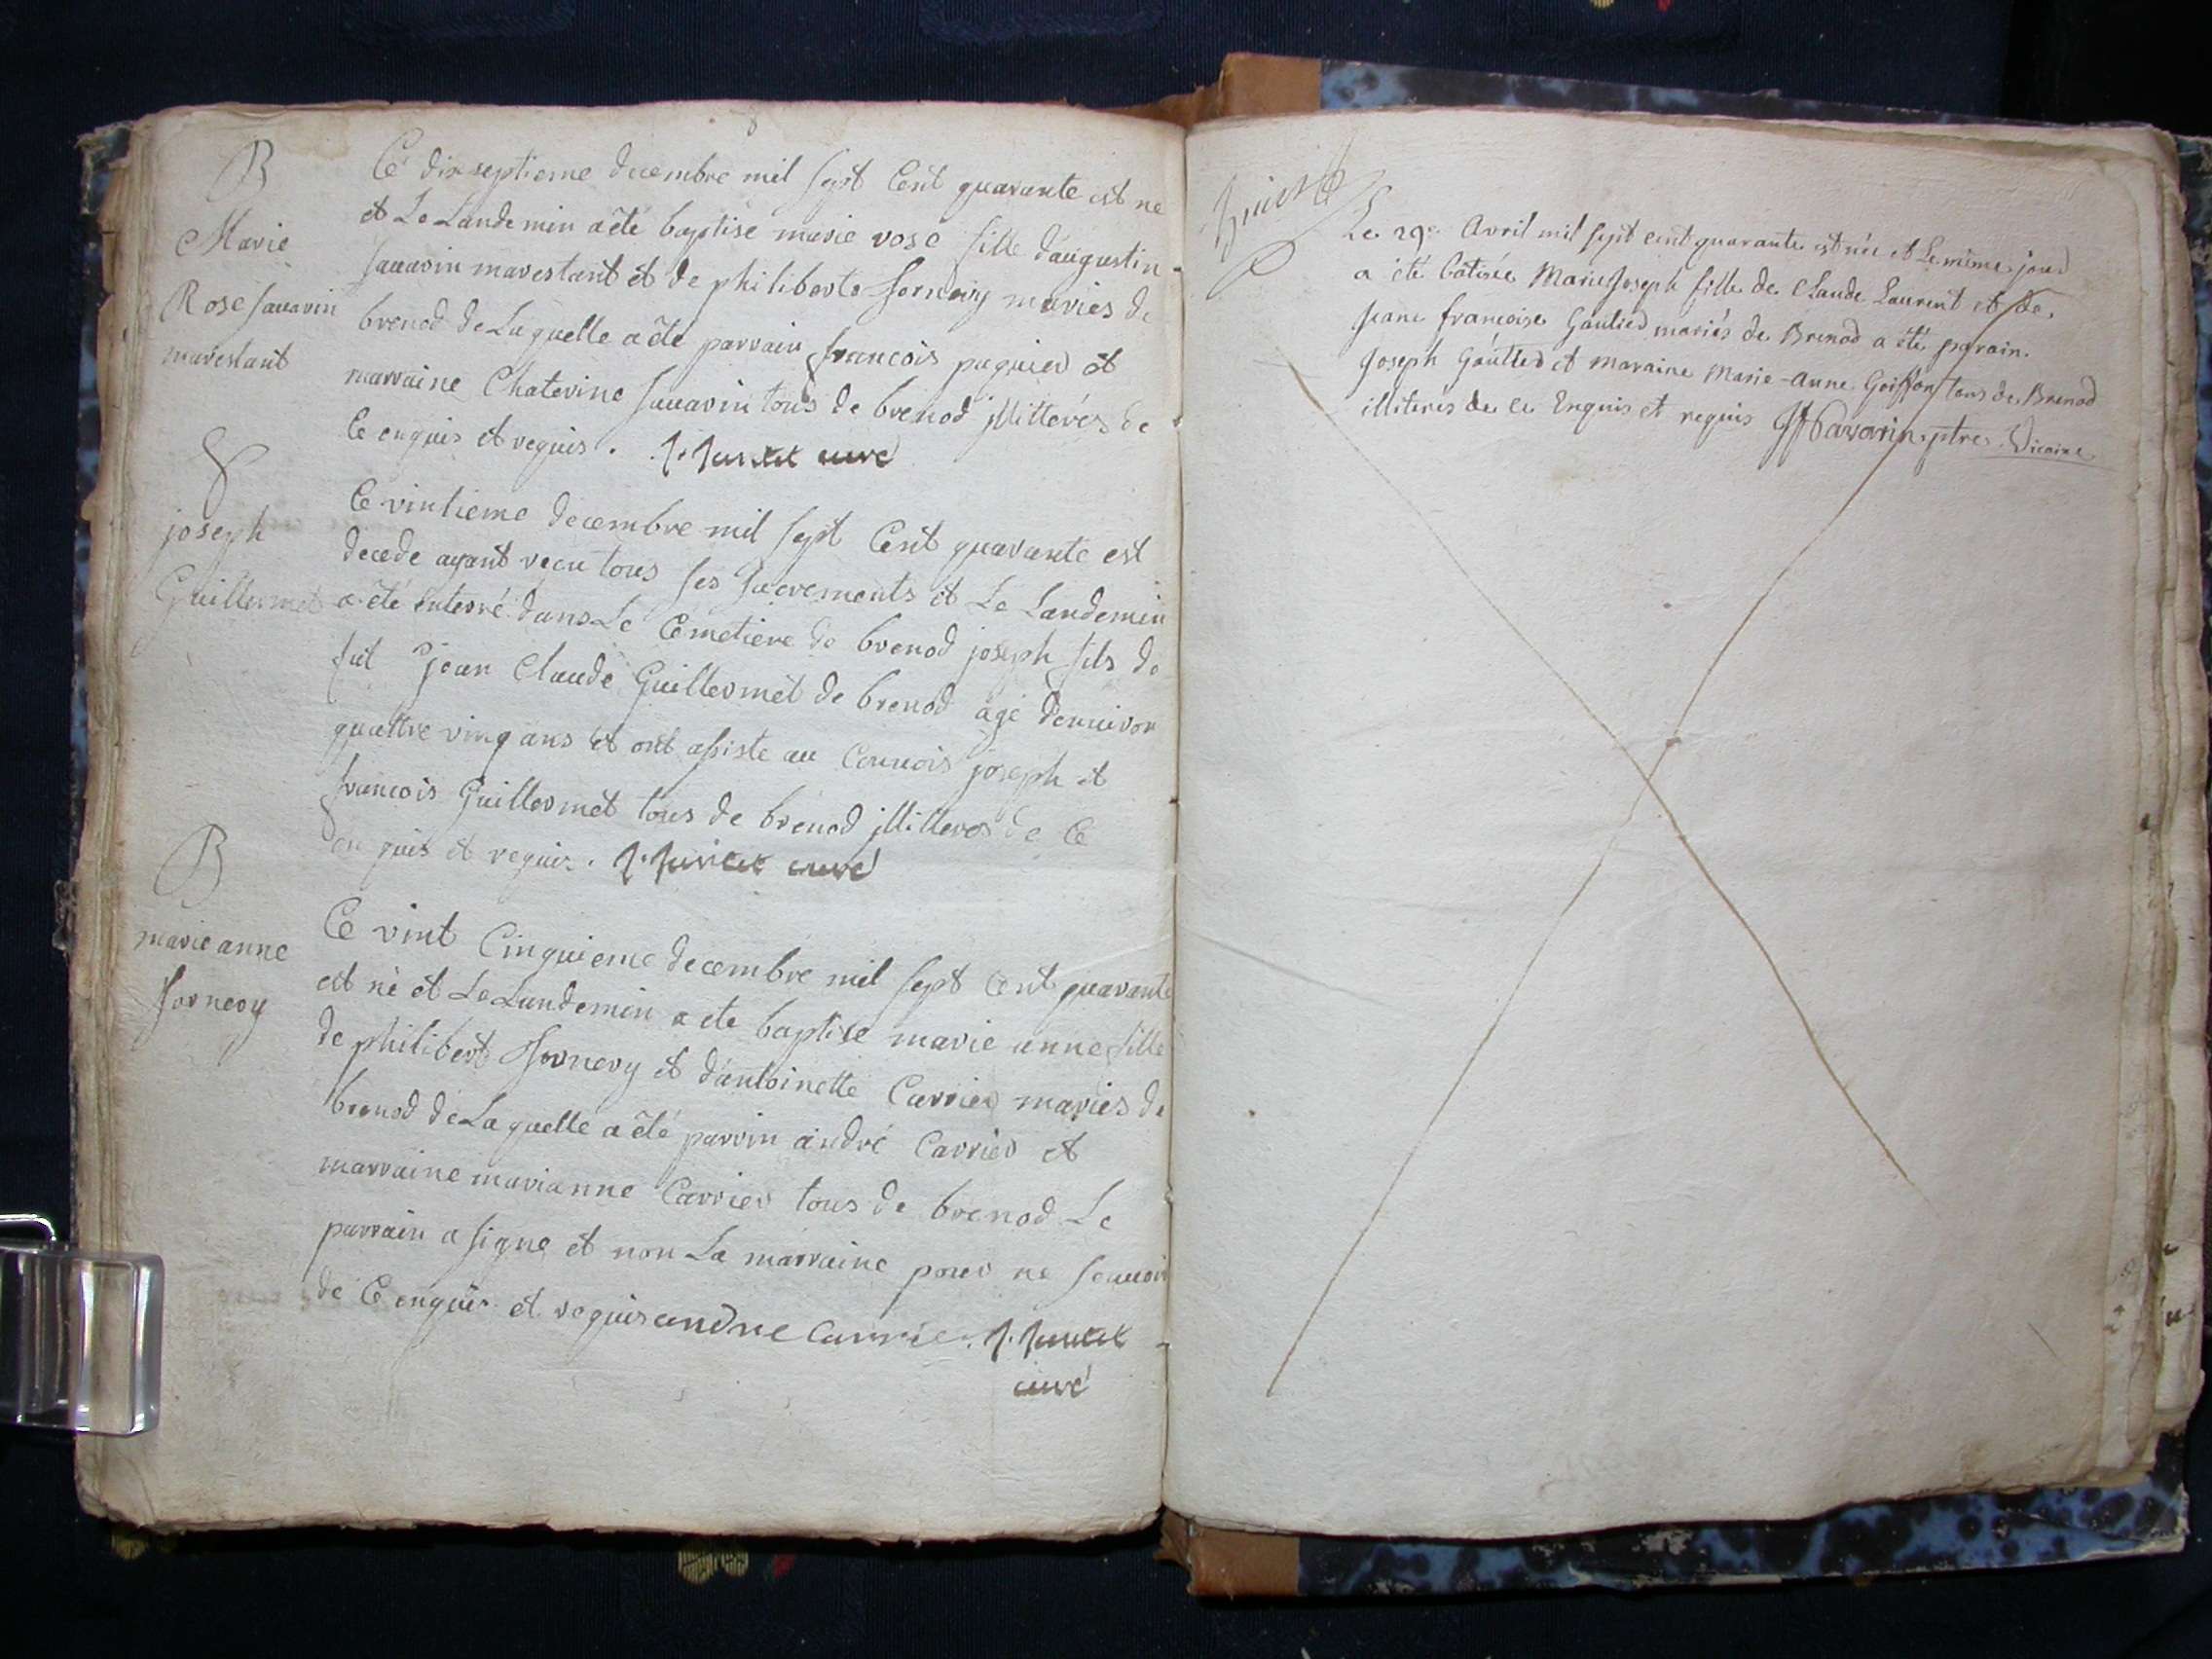 B
Marie
Rose sauarin
marestant
Ce dixseptieme decembre mil sept Cent quarante est ne
et Le Landemin a été baptisé marie rose fille d'augustin
sauarin marestant et de philiberte fornery mariés de
brenod de Laquelle a été parrain francois paquier et
marraine Chaterine sauarin tous de brenod jllitterés de
Ce enquis et requis. curé
joseph
Guillermet
Ce vintieme decembre mil sept Cent quarante est
decede ayant recu tous ses sacrements et Le Landemin
a été enterré dans Le Cemetiere de brenod joseph fils de
fut jean Claude Guillermet de brenod agé denuiron
quattre vinq ans et ont assiste au Conuois joseph et
francois Guillermet tous de brenod jllitteres de Ce
en quis et requis. curé
B
marie anne
fornery
Ce vint Cinquieme decembre mil sept Cent quarante
est né et Le Landemin a ete baptise marie anne fille
de philibert fornery et d'antoinette Carrier mariés de
brenod de Laquelle a été parrin andré Carrier et
marraine marianne Carrier tous de brenod Le
parrain a signe et non La marraine pour ne scauoir
de Ce enquis et requis andre Carrie.
curé
Le 29e Avril mil sept cent quarante est née et Le même jour
a été batisée Marie Joseph fille de Claude Laurent et de
jeane francoise Gautier mariés de Brenod a été parain
Joseph Gautier et maraine Marie-Anne Goiffon tous de Brenod
illiterés de ce Enquis et requis Savarin ptre Vicaire